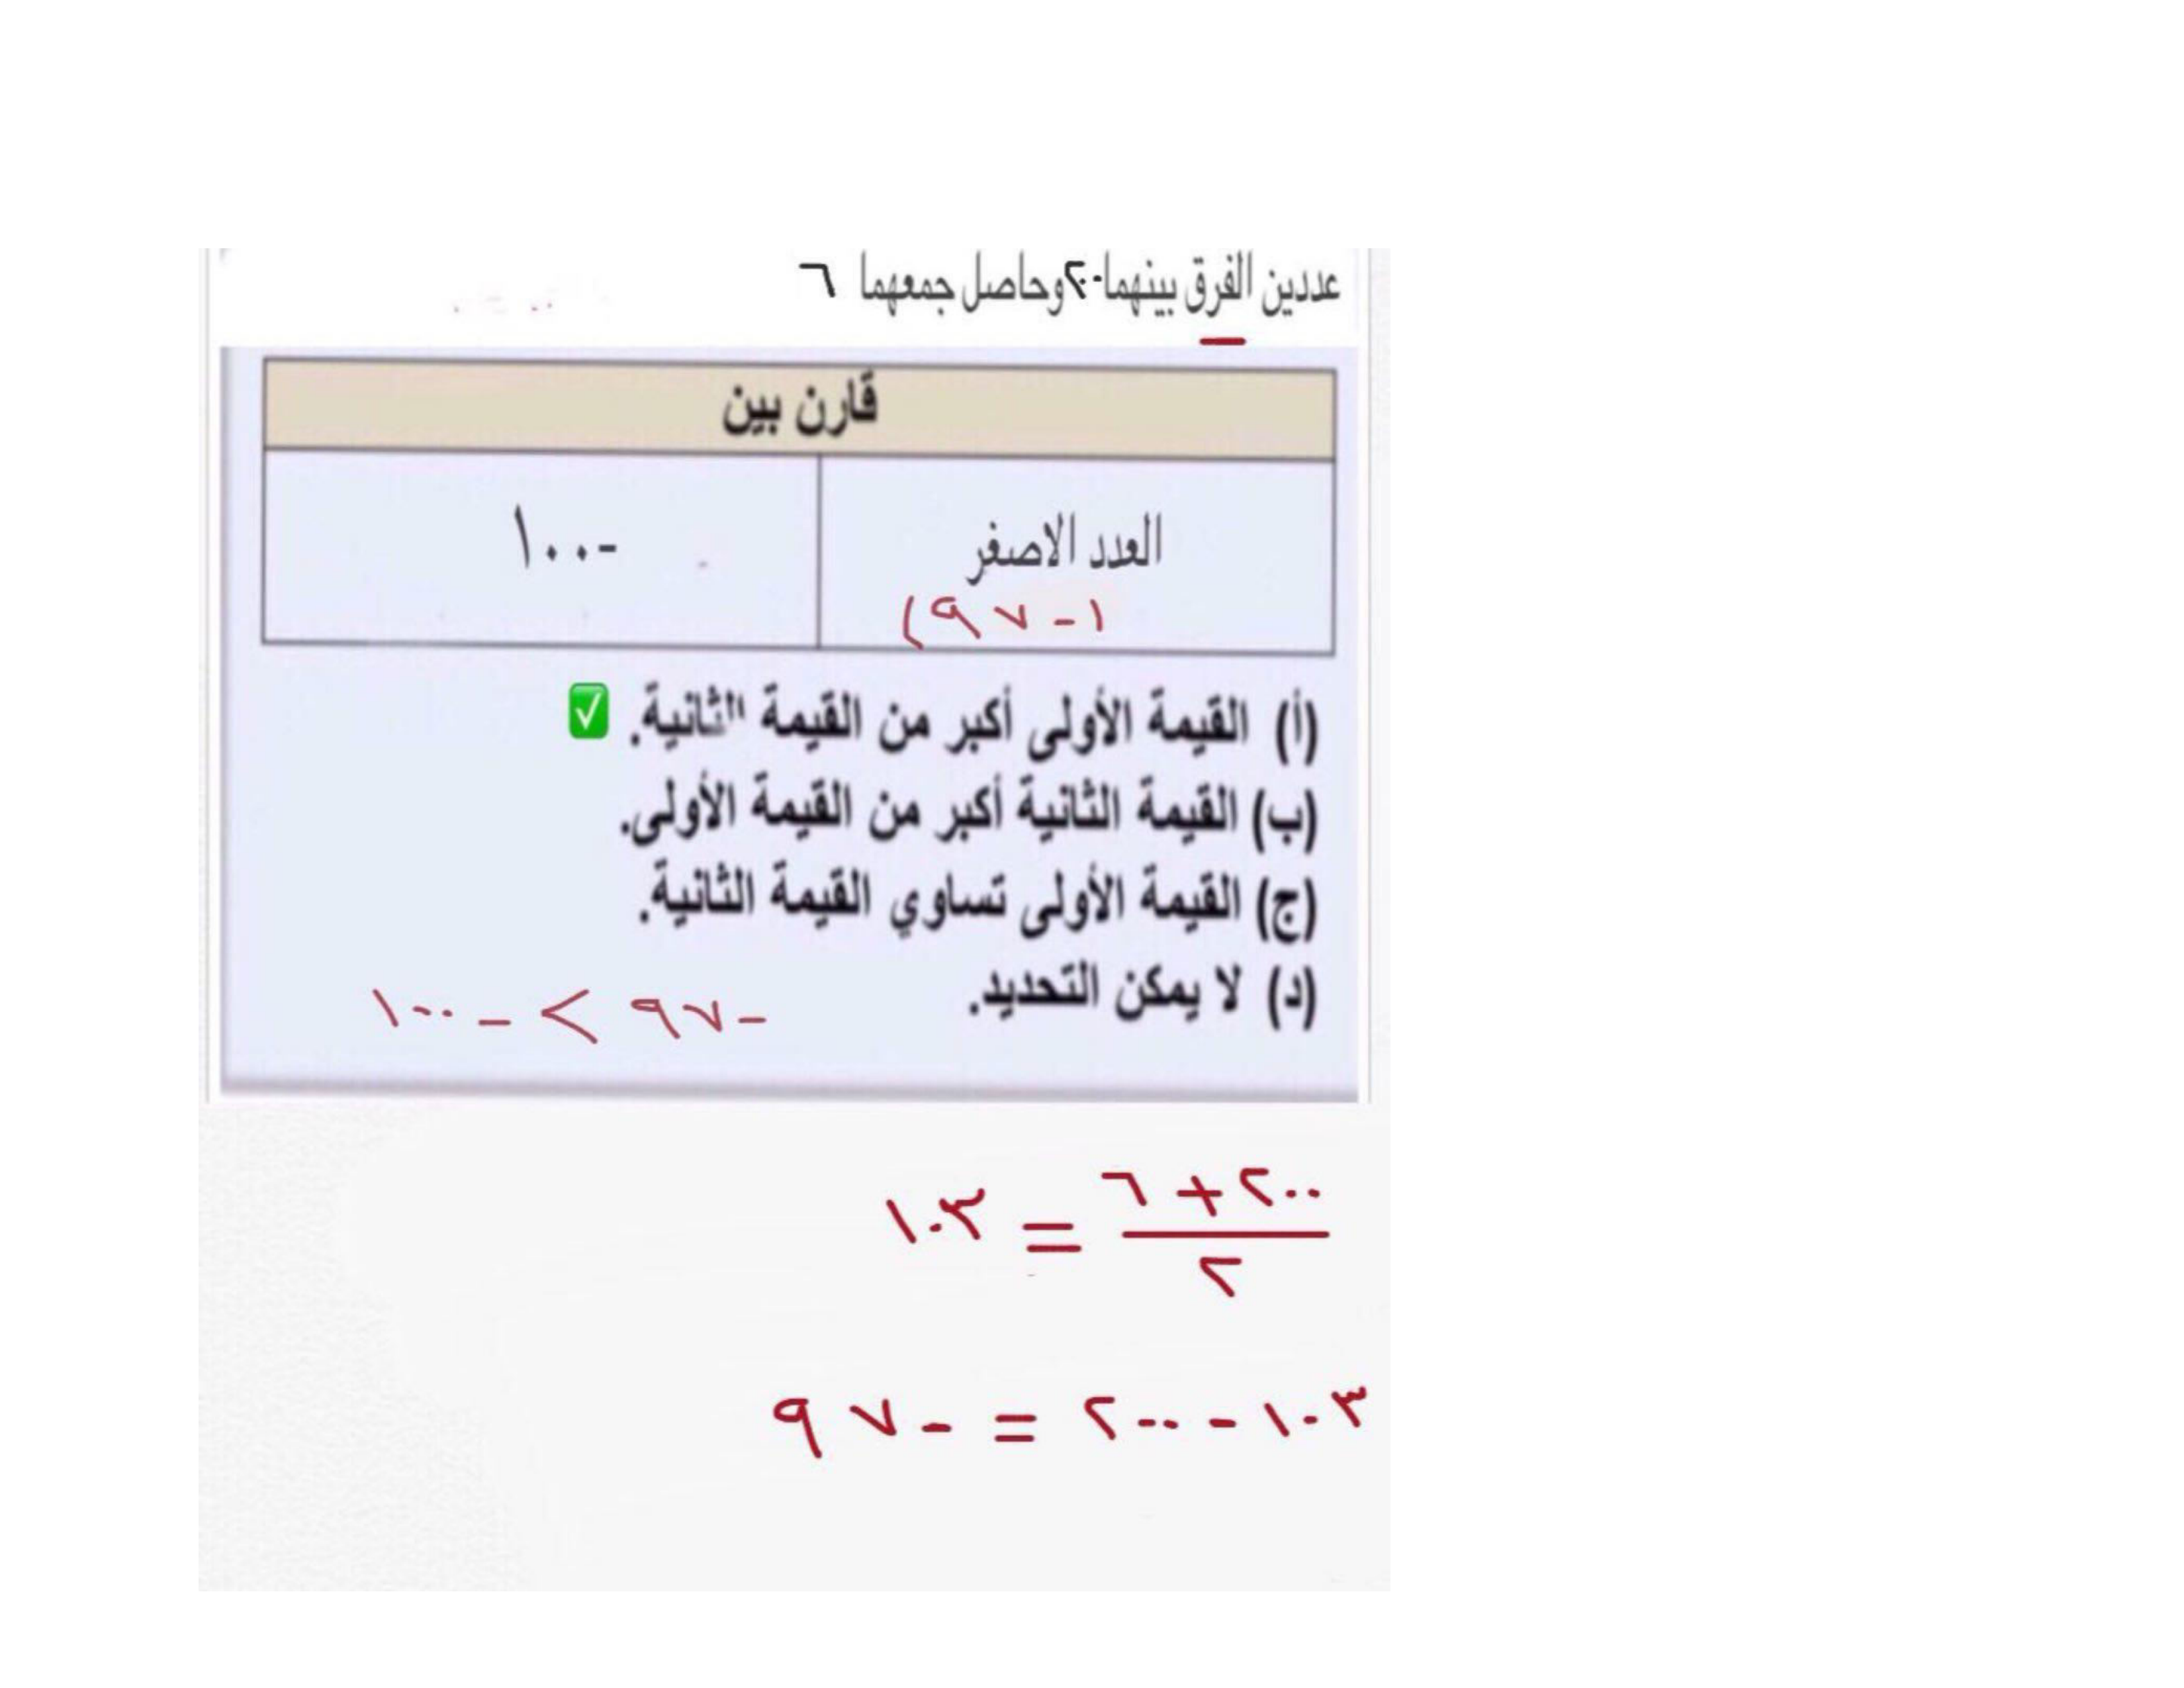 عددين الفرق بينهما ٢٠٠ وحاصل جمعهما ٦
قارن بين
العدد الاصغر
(-٩٧)
-١٠٠
(أ) القيمة الأولى أكبر من القيمة الثانية. ✅
(ب) القيمة الثانية أكبر من القيمة الأولى.
(ج) القيمة الأولى تساوي القيمة الثانية.
(د) لا يمكن التحديد.
-٩٧ > -١٠٠
٢٠٠ + ٦
٢
= ١٠٣
١٠٣ - ٢٠٠ = -٩٧